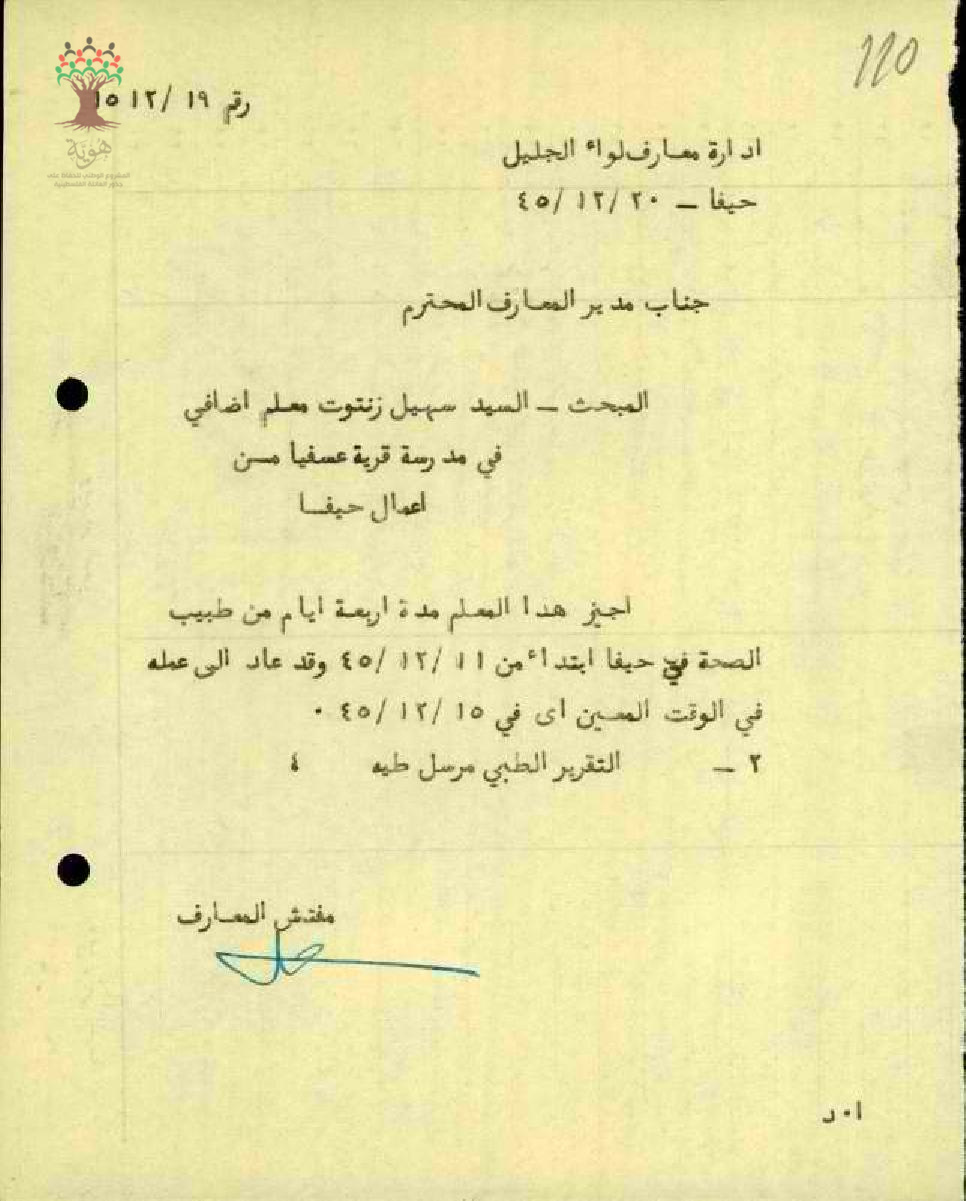 110
رقم ١٩ /١٢ ١٥
هوية
المشروع الوطني للحفاظ على
جذور العائلة الفلسطينية
ادارة معارف لواء الجليل
حيفا — ٢٠ /١٢ /٤٥
جناب مدير المعارف المحترم
المبحث — السيد سهيل زنتوت معلم اضافي
في مدرسة قرية عسفيا مسن
اعمال حيفا
اجيز هذا المعلم مدة اربعة ايام من طبيب
الصحة في حيفا ابتداء من ١١ /١٢ /٤٥ وقد عاد الى عمله
في الوقت المعين اى في ١٥ /١٢ /٤٥ ٠
٢ — التقرير الطبي مرسل طيه ٤
مفتش المعارف
ا٠د